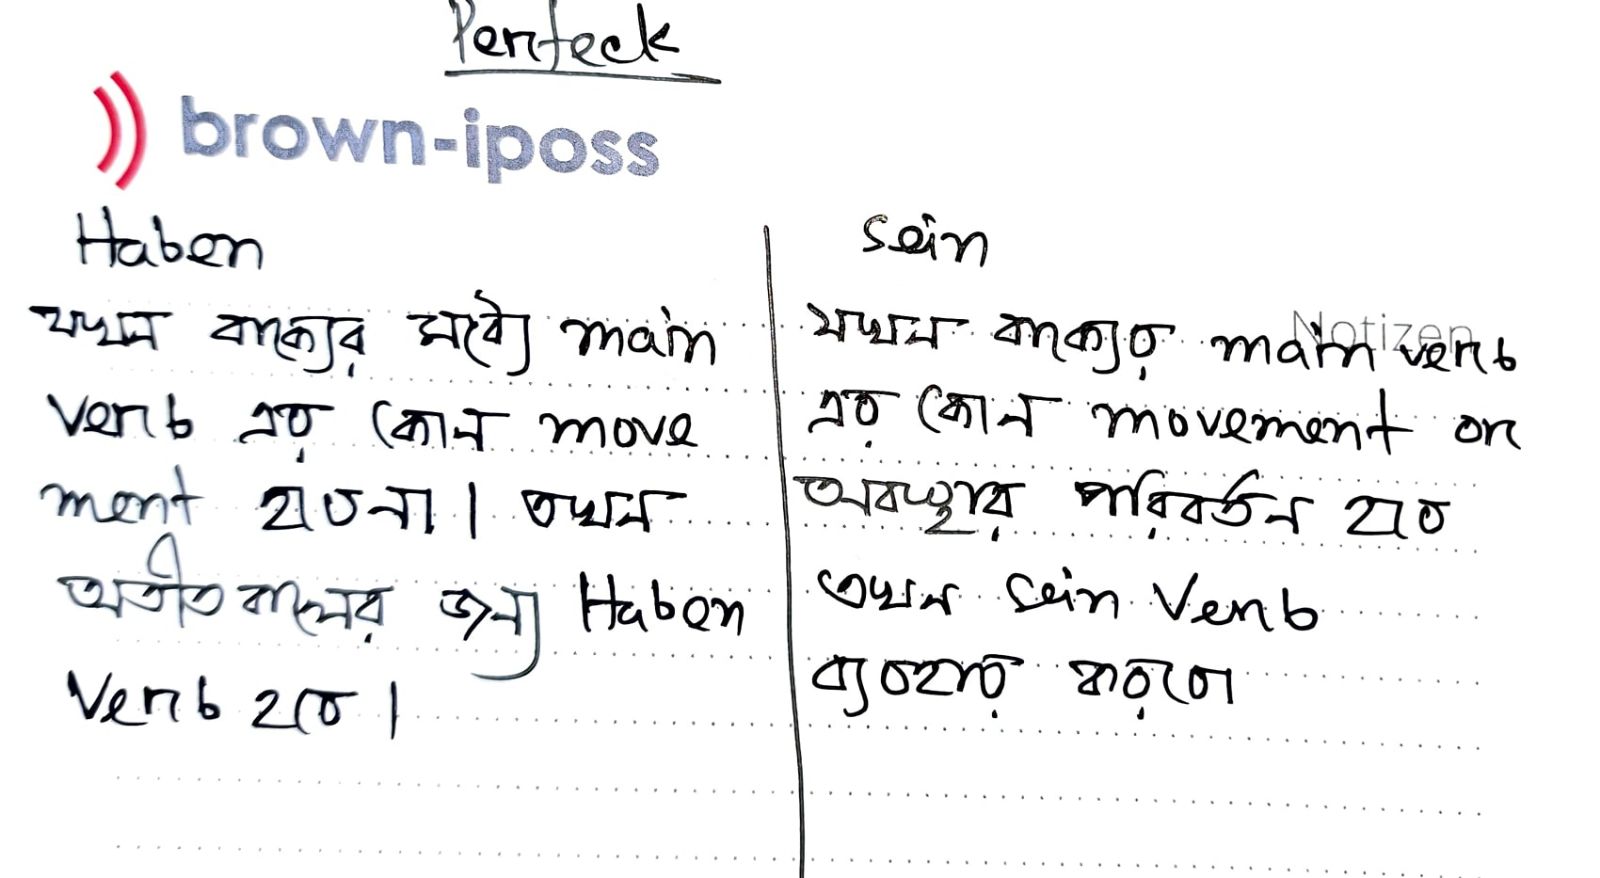 Perfeck
brown-iposs
Haben
যখন বাক্যের মধ্যে main
verb এর কোন move
ment হবেনা। তখন
অতীত কালের জন্য Haben
Verb হবে।
Sein
Notizen
যখন বাক্যের main verb
এর কোন movement or
অবস্থার পরিবর্তন হবে
তখন Sein Verb
ব্যবহার করবো